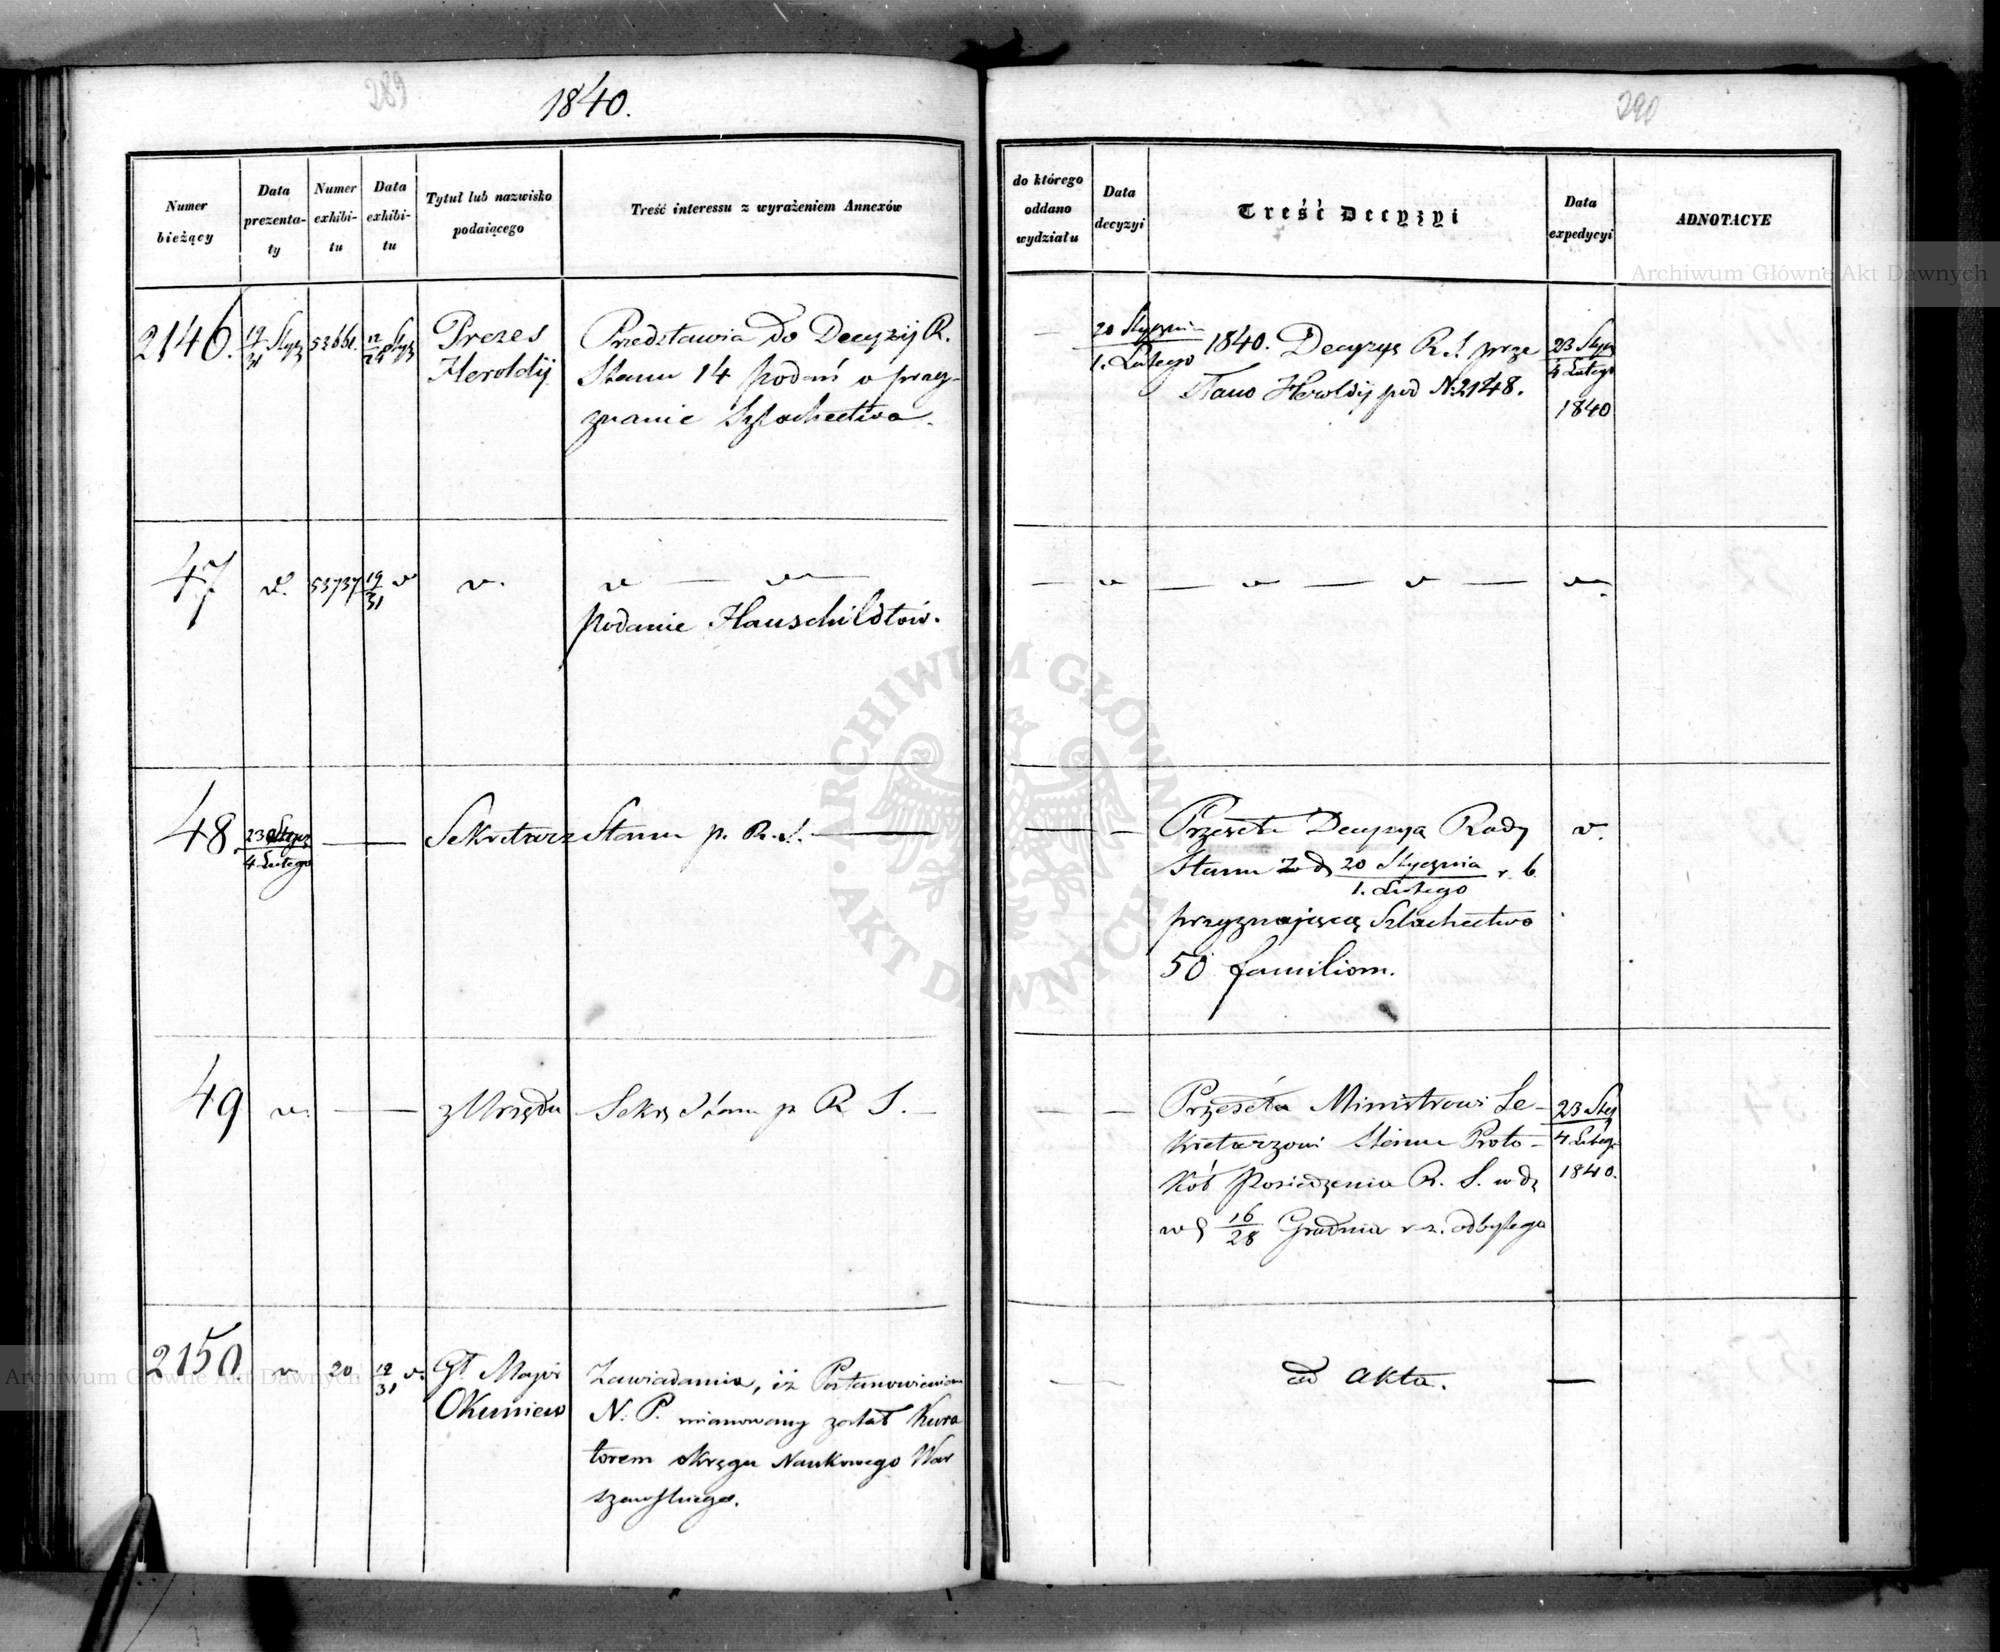 289
1840.
Numer bieżący
Data prezenta-ty
Numer exhibi-tu
Data exhibi-tu
Tytuł lub nazwisko podaiącego
Treść interessu z wyrażeniem Annexów
2146.
19/31 Stycz
53661.
12/24 Stycz
Prezes
Heroldij
Przedstawia do Decyzij R.
Stanu 14 podań o przy-
znanie Szlachectwa.
47
v.
53737
19/31 v
v.
v — v —
podanie Hauschildtów.
48.
23 Stycz / 4 Lutego
— —
Sekretarz Stanu p. R. S. —
49
v.
— —
z Urzędu
Sekr Stanu p R S. —
2150.
v.
20
19/31 v.
Gł Major
Okuniew
Zawiadamia, iż Postanowieniem
N. P. mianowany został Kura
torem Okręgu Naukowego War
szawskiego.
290
do którego oddano wydziału
Data decyzyi
Treść Decyzyi
Data expedycyi
ADNOTACYE
—
20 Stycznia / 1. Lutego
1840. Decyzyę R. S. prze
słano Heroldij pod N. 2148.
23 Stycz / 4 Lutego
1840
— v — v — v — v.
— —
Przesęła Decyzyą Rady
Stanu z d 20 Stycznia / 1. Lutego r. b.
przyznającą Szlachectwo
50 familiom.
v.
— —
Przeséła Ministrowi Se-
kretarzowi Stanu Proto-
kół Posiedzenia R. S. w
16/28 Grudnia r. z. odbytego
23 Stycz / 4 Lutego
1840.
—
ad akta.
—
Archiwum Główne Akt Dawnych
ARCHIWUM GŁÓWNE · AKT DAWNYCH ·
Archiwum Główne Akt Dawnych